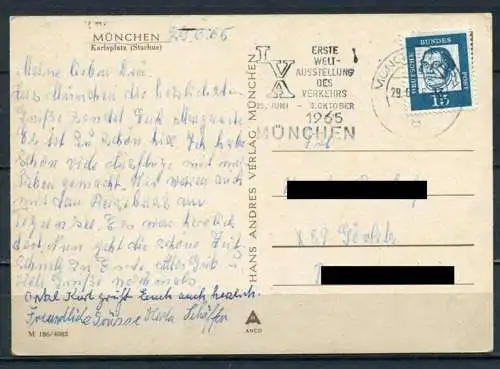 MÜNCHEN
Karlsplatz (Stachus)
Meine lieben Drei,
aus München die herzlichsten
Grüße sendet Euch
Es ist so schön hier. Ich habe
schon viele Ausflüge mit meinen
Lieben gemacht. Wir waren auch
mit dem am
Tegernsee. Es war herrlich
dort. Nun geht die schöne Zeit
schnell zu Ende. Alles Gute u.
viele Grüße nochmals
Onkel Kurt grüßt Euch auch herzlich.
Freundliche Grüsse Karla Schäffer
M 186/4082
HANS ANDRES VERLAG, MÜNCHEN
ANCO
IVA
ERSTE
WELT-
AUSSTELLUNG
DES
VERKEHRS
25. JUNI - 3. OKTOBER
1965
MÜNCHEN
MÜNCHEN
29.
DEUTSCHE
BUNDES
POST
15
X 89 Görlitz